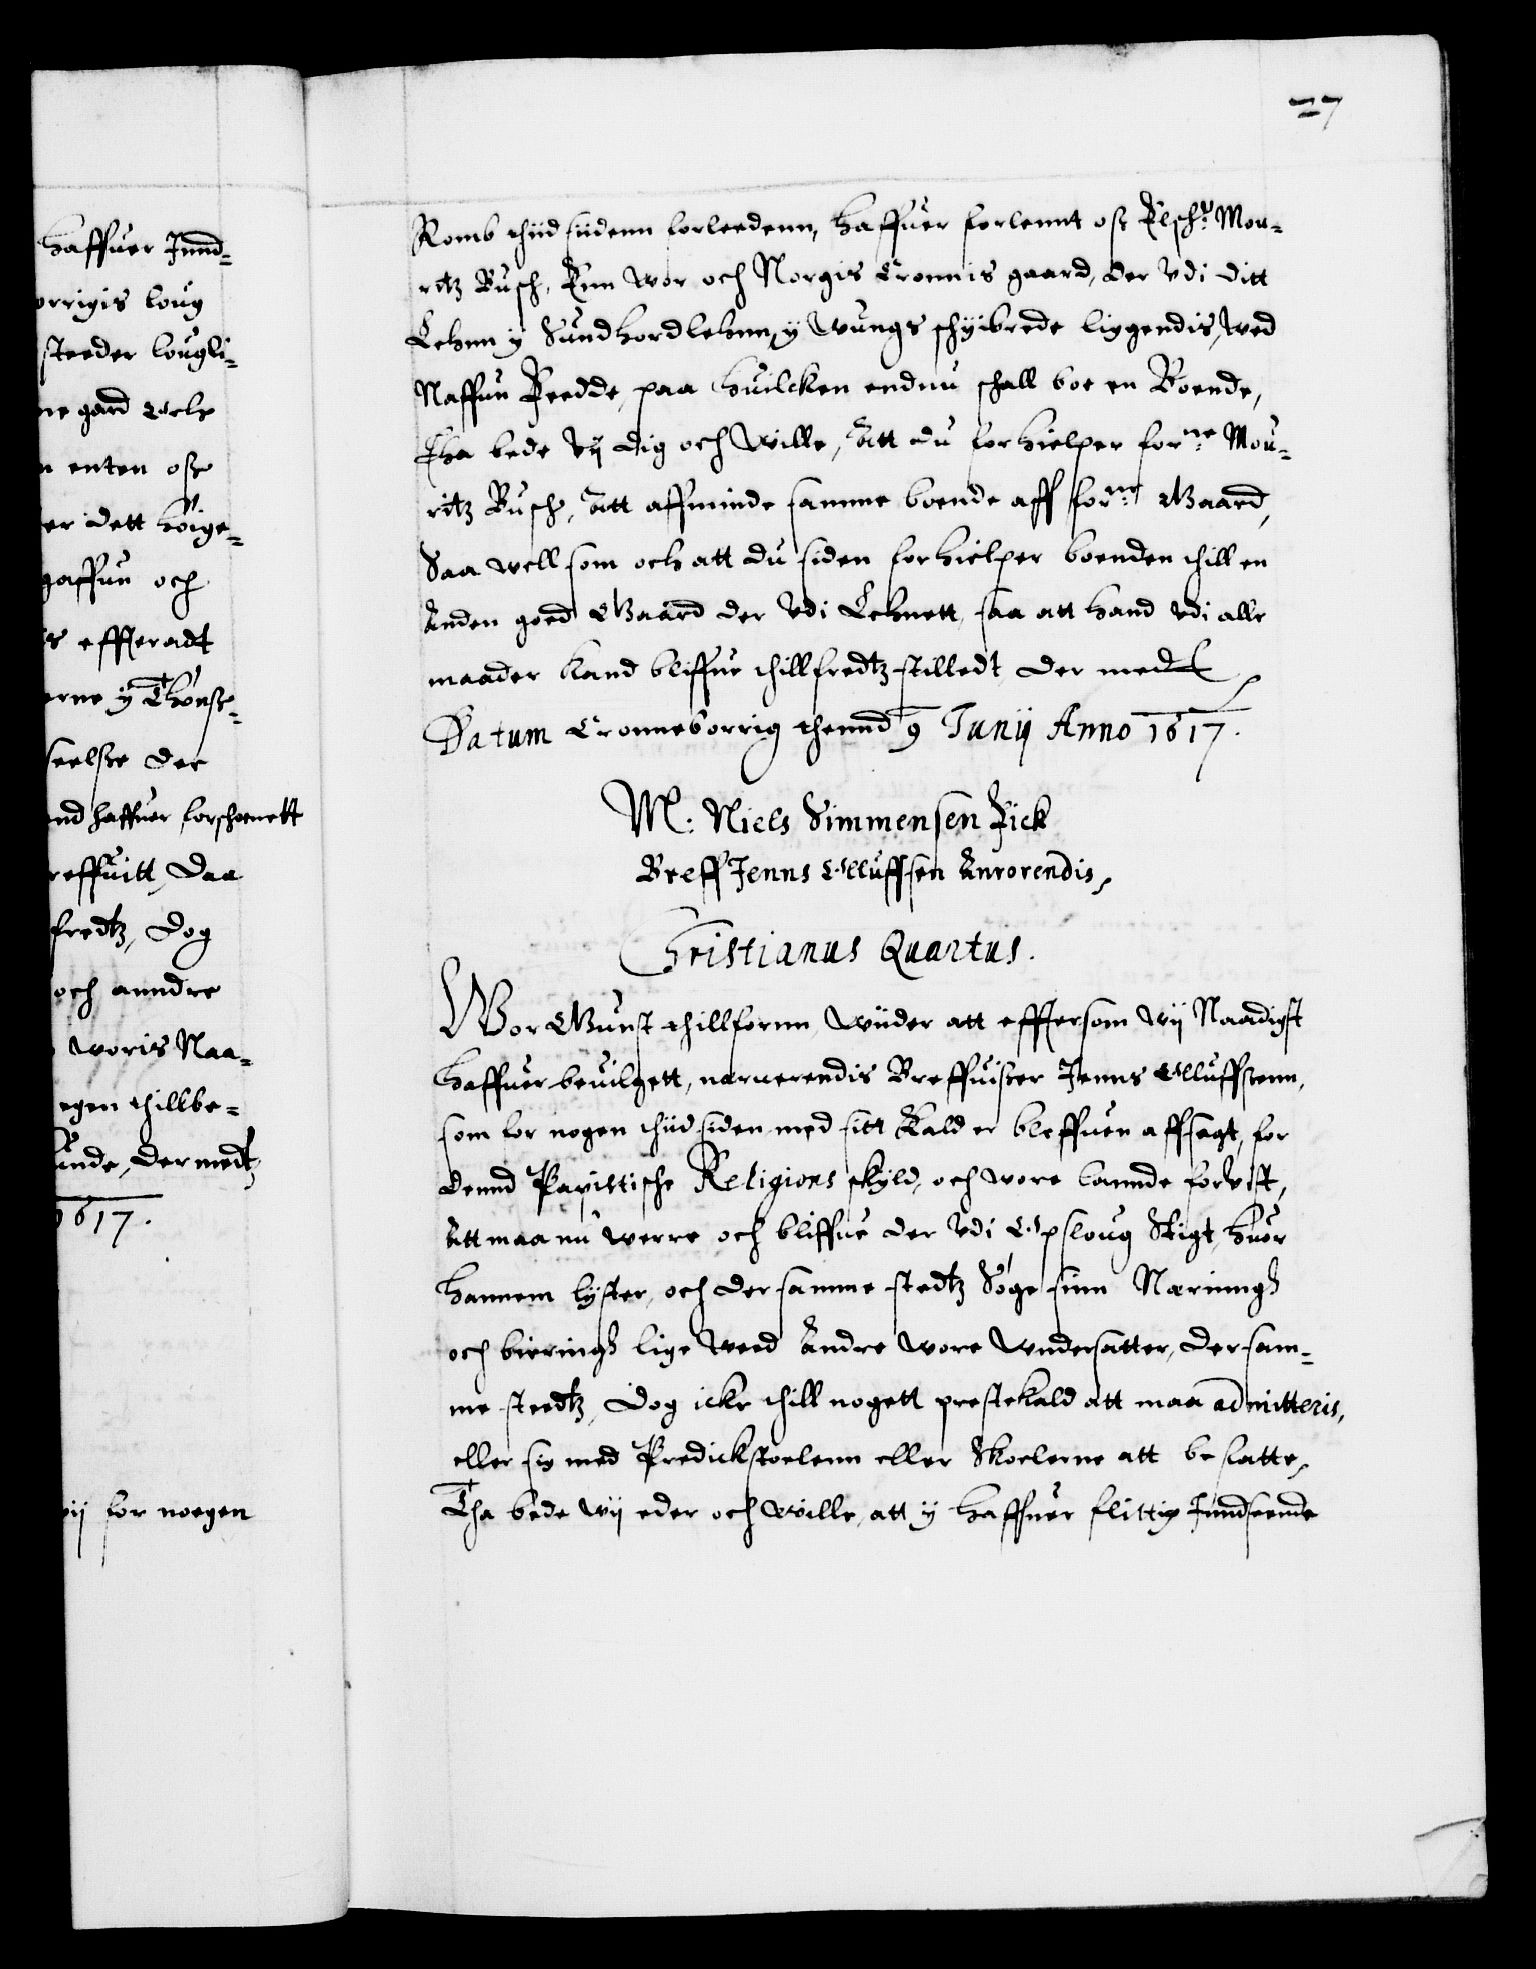 27
haffuer Jnnd-
orrigis loug
steeder lougli-
ne gard Welb
n enten oss
er dett høige-
gaffun och
effteradt
erne ÿ Thønss-
seelsse der
nd haffuer forschoenett
reffuitt, Daa
fredtz, Dog
och anndre
woris Naa-
egen thillbe-
unde, der medt
1617.
wij for noegen
Romb thiid siidenn forleedenn, haffuer forlennt oss Elsch: Mou-
ritz Busch, Enn wor och Norgis Cronnis gaard, der vdi ditt
Lehnn ÿ Sundhordlehnn, ÿ Wungs schiibrede liggendis, wed
Naffnn Reedde, paa huilcken endnu schall boe en Boende,
Tha bede wij dig och wille, Att du forhielper forne: Mou-
ritz Busch, Att affminde samme boende aff forne: Gaard,
Saa well som och att du siden forhielper boenden thill en
Anden goed Gaard der vdi Lehnett, saa att hand vdi alle
maader kand bliffue thillfredtz stilledt der med
Datum Cronneborrig thennd 9 Junij Anno 1617.
M: Niels Simmensen Fick
Breff Jenns Olluffsen Anrorendis,
Christianus Quartus.
Wor Gunst thillfornn, Wiider att effttersom wij Naadigst
haffuer beuilgett, nærwerendis Breffuisser Jenns Olluffssenn,
som for nogen thiid siden med sitt Kald er bleffuen affsagt, for
dennd Papistische Religions skyld, och wore lannde foruist,
Att maa nu werre och bliffue der vdi Opsloug Stigt, huor
hannem lyster, och der samme stedtz Søge sinn Næringh
och bieringh lige weed Andre wore Wndersatter, der sam-
me steedtz, Dog icke thill nogett prestekald att maa admitteris,
eller sig med Predickstoelenn eller Skoelerne att befatte,
Tha bede wij eder och wille, att ÿ haffuer flittig Jnndseende